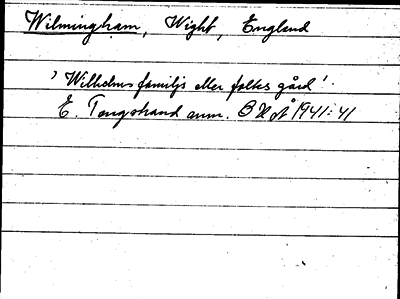 Wilmingham, Wight, England
'Wilhelms familjs eller folks gård'.
E. Tengstrand anm. 1941:41